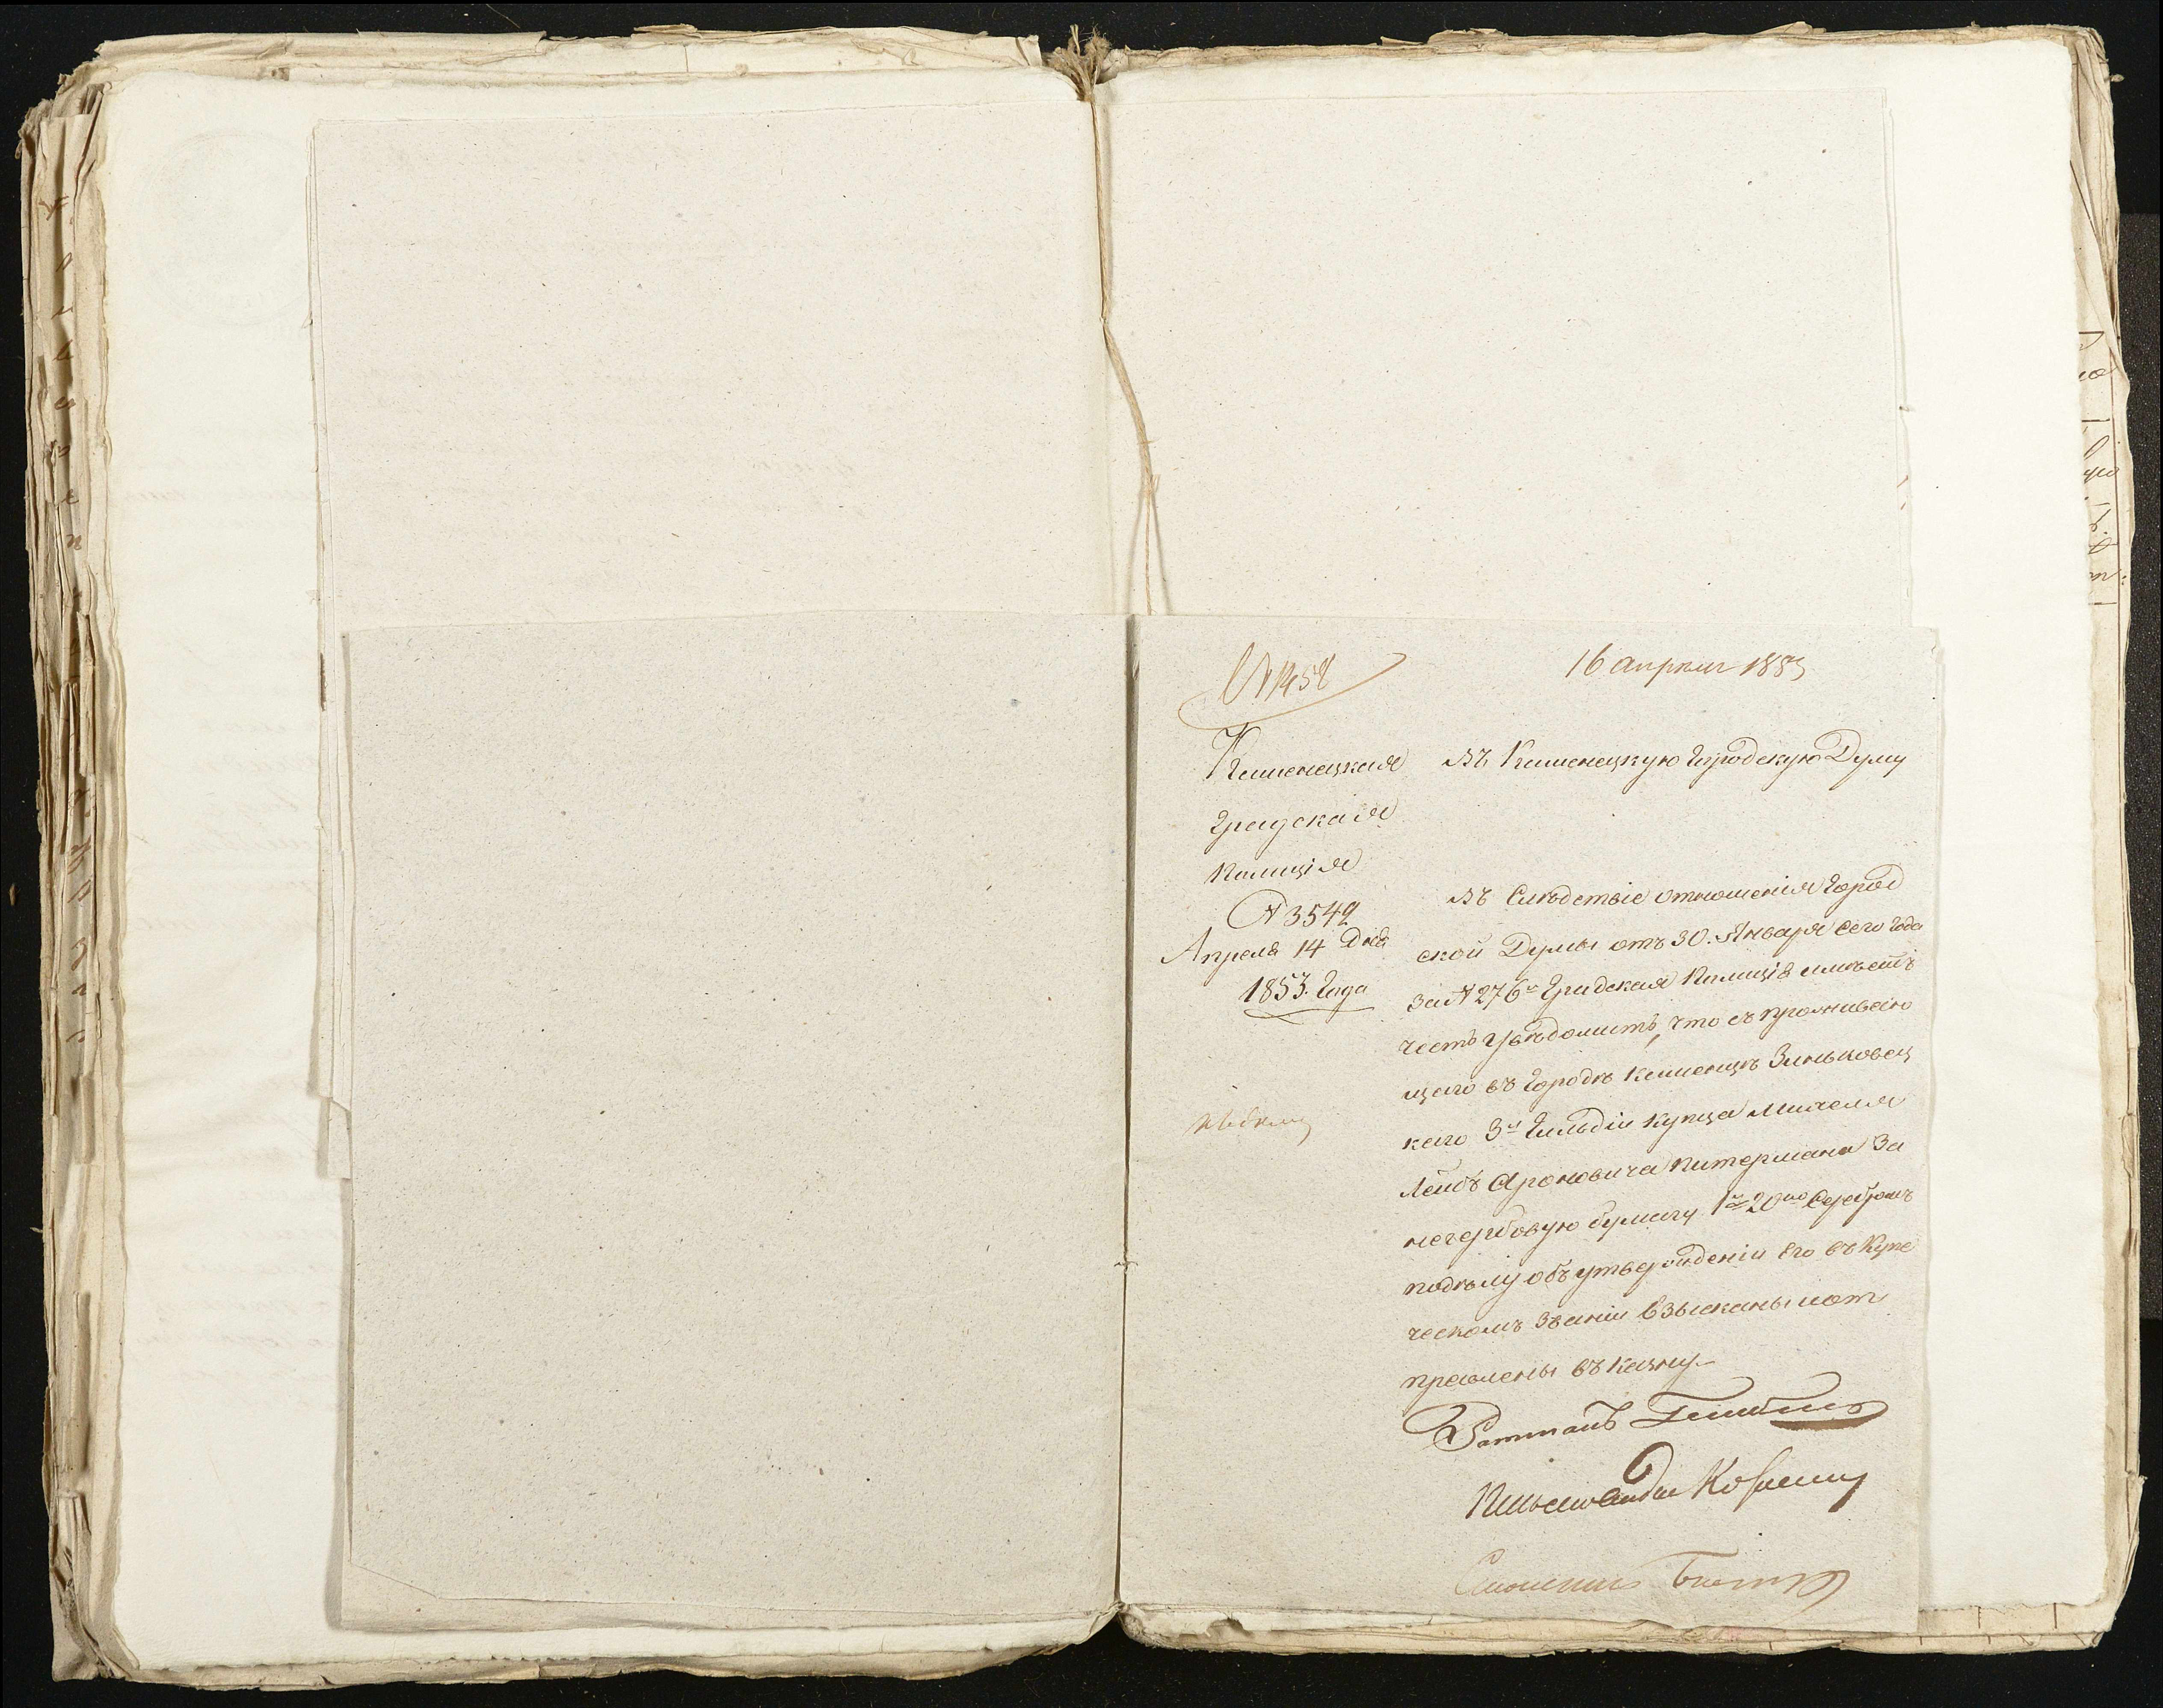 № 1458
16 апреля 1853
Каменецкая
Градская
Полиція
№ 3542
Апреля 14 дня
1853. Года
Въ Каменецкую Городскую Думу
Въ Следствіе отношенія Город
ской Думы отъ 30. Января сего года
за № 276 Градская Полиція имѣетъ
честь увѣдомить, что съ проживаю
щаго въ Городѣ Каменцѣ Зиньковец
каго 3й Гильдіи купца Михеля
Лейбъ Ароновича Питермана за
негербовую бумагу 1 р 20 ко Серебромъ
подѣлу объ утвержденіи его въ Купе
ческомъ Званіи взысканы иот
правлены въ казну.
Ратманъ
Письмоводи